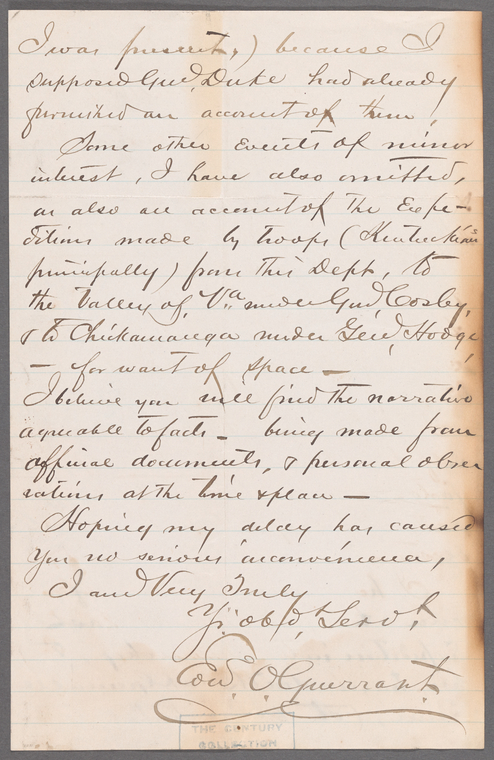 I was present,) because I
supposed Genl, Duke had already
furnished an account of them.
Some other events of minor
interest, I have also omitted,
as also an account of the Expe-
ditions made by troops (Kentuckians
principally) from this Dept, to
the Valley of Va under Genl Cosby,
& to Chickamauga under Genl, Hodge,
— for want of space —
I believe you will find the narrative
agreeable to facts — being made from
official documents, & personal obser
vations at the time & place —
Hoping my delay has caused
you no serious inconvenience,
I am Very Truly
Yr. obd't Servt.
Edwd. O. Guerrant
THE CENTURY
COLLECTION